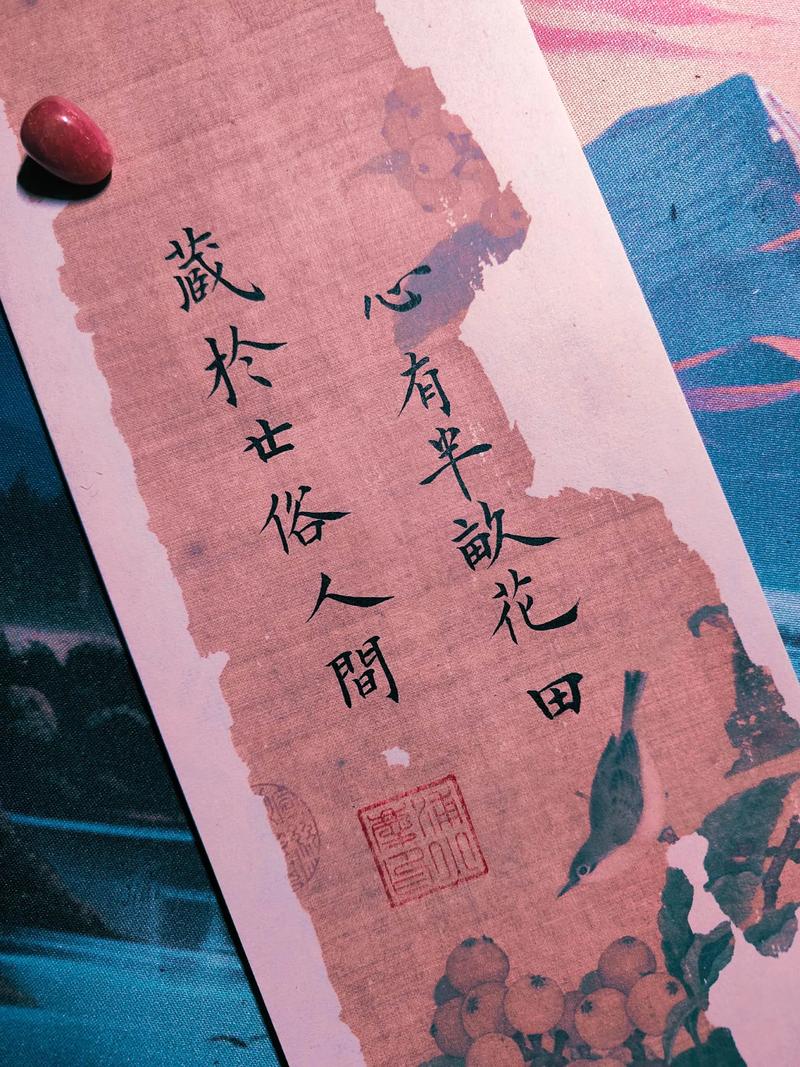 心有半畝花田
蔵於世俗人間